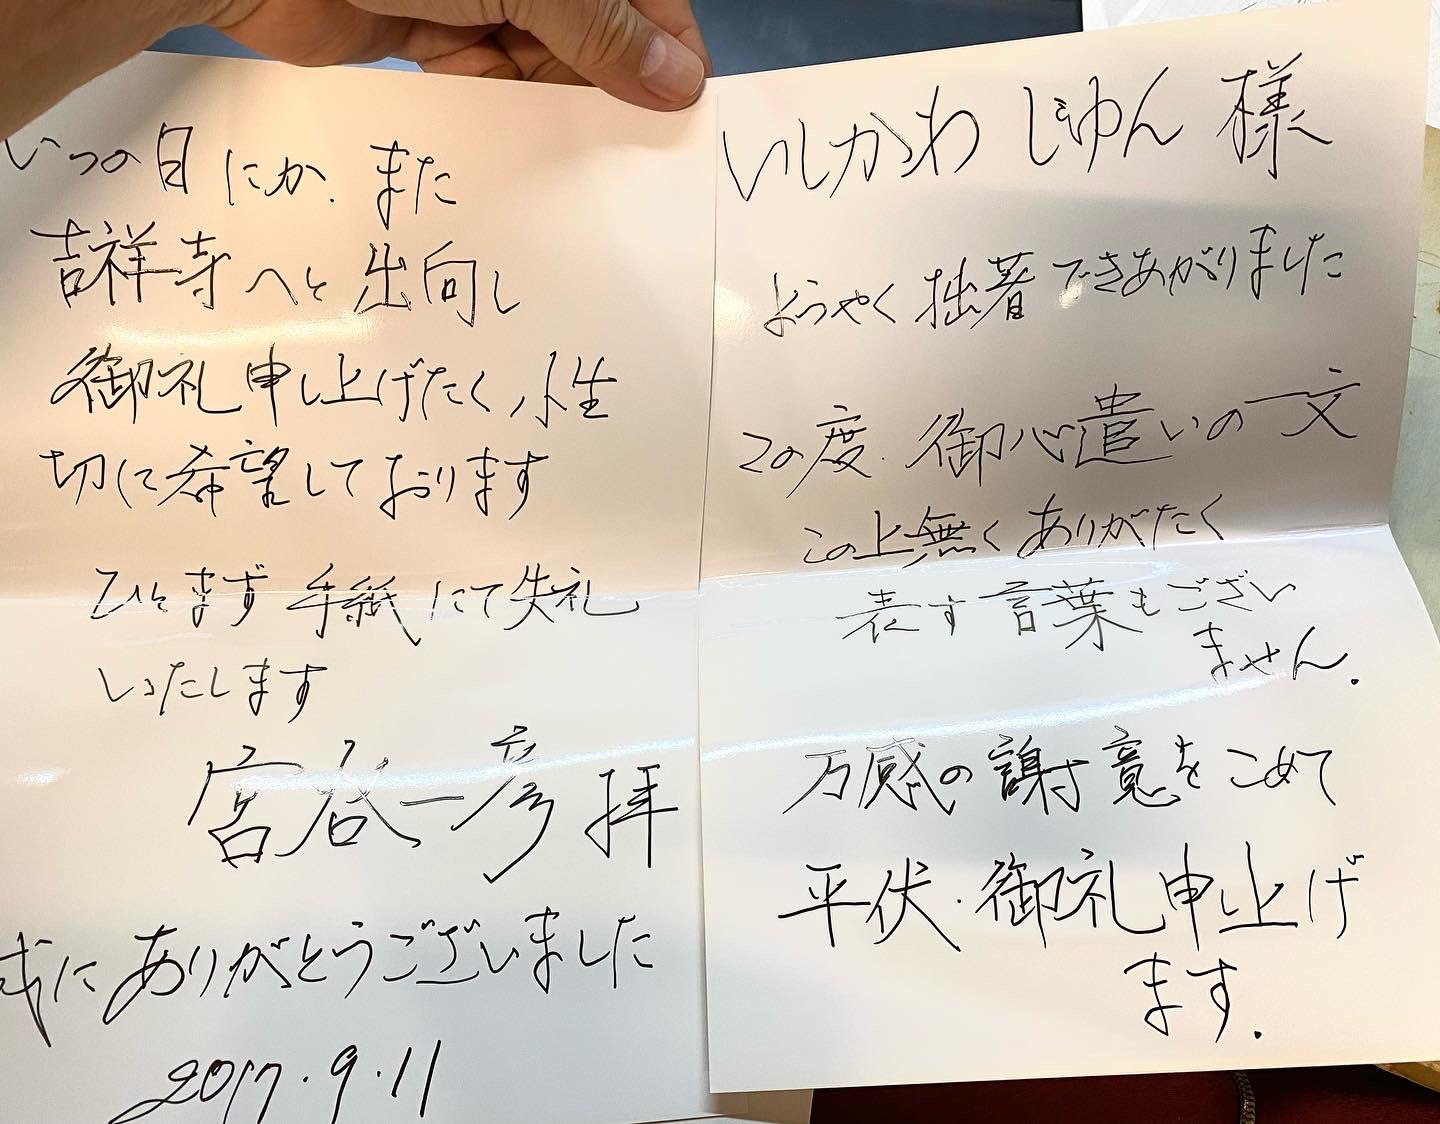 いしかわじゅん様
ようやく拙著できあがりました
この度.御心遣いの一文
この上無くありがたく
表す言葉もござい
ません.
万感の謝意をこめて
平伏.御礼申上げ
ます.
いつの日にか.また
吉祥寺へと出向し
御礼申し上げたく小生
切に希望しております
ひとまず手紙にて失礼
いたします
宮谷一彦拝
誠にありがとうございました
2017.9.11